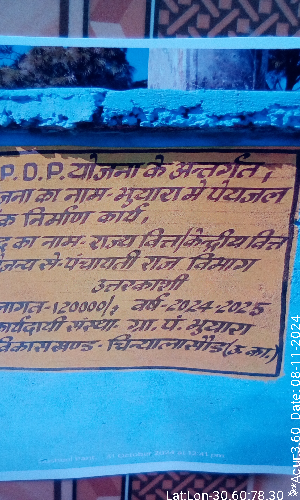 P.D.P. योजना के अन्तर्गत,
जना का नाम- भुयारा मे पेयजल
क निर्माण कार्य,
द का नाम- राज्य वित्त/केन्द्रीय वित्त
जन्य से- पंचायती राज विभाग
उत्तरकाशी
नागत-120000/; वर्ष-2024-2025
कार्यदायी संस्था- ग्रा. पं. भुयारा
विकासखण्ड- चिन्यालीसौड़ (उ. का.)
LatLon-30.60:78.30
**Acur=3.60 Date: 08-11-2024